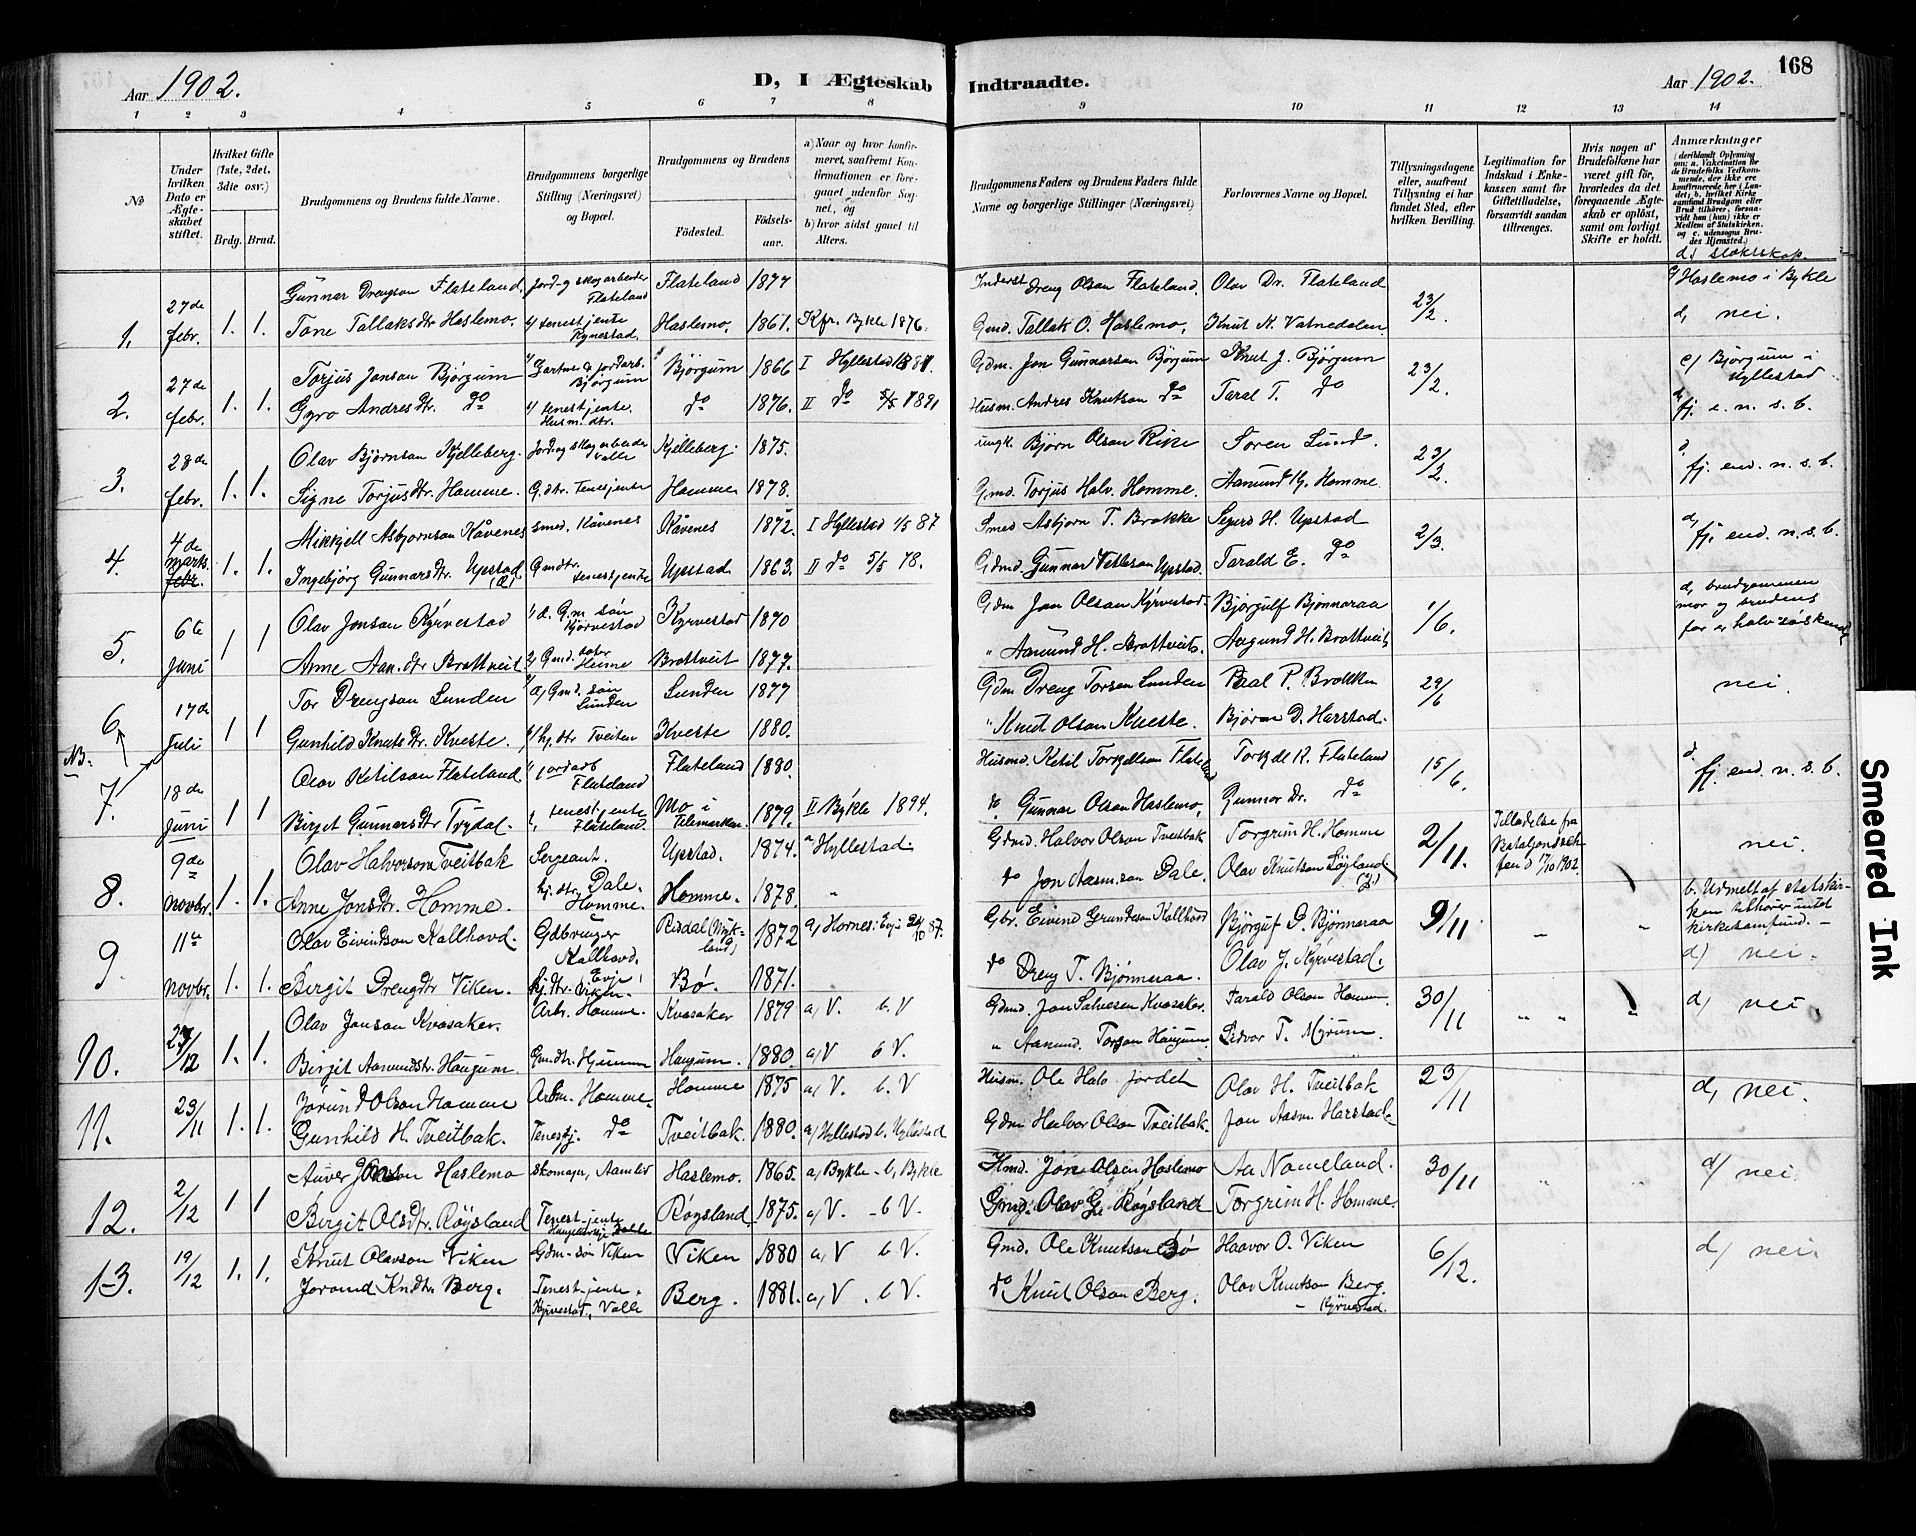 Aar 1902.
D, I Ægteskab Indtraadte.
Aar 1902.
168
1 2 3 4 5 6 7 8 9 10 11 12 13 14
No
Under hvilken Dato er Ægteskabet stiftet.
Hvilket Gifte (1ste, 2det, 3die osv.)
Brdg. Brud.
Brudgommens og Brudens fulde Navne.
Brudgommens borgerlige Stilling (Næringsvei) og Bopæl.
Brudgommens og Brudens
Fødested. Fødselsaar.
a) Naar og hvor konfirmeret, saafremt Konfirmationen er foregaaet udenfor Sognet, og
b) hvor sidst gaaet til Alters.
Brudgommens Faders og Brudens Faders fulde Navne og borgerlige Stillinger (Næringsvei)
Forlovernes Navne og Bopæl.
Tillysningsdagene eller, saafremt Tillysning ei har fundet Sted, efter hvilken Bevilling.
Legitimation for Indskud i Enkekassen samt for Giftetilladelse, forsaavidt saadan tiltrænges.
Hvis nogen af Brudefolkene har været gift før, hvorledes da det foregaaende Ægteskab er opløst, samt om lovligt Skifte er holdt.
Anmærkninger
(deriblandt Oplysning om: a. Vakcination for de Brudefolks Vedkommende, der ikke ere konfirmerede her i Landet; b. hvilket Kirkesamfund Brudgom eller Brud tilhører, forsaavidt han (hun) ikke er Medlem af Statskirken, og c. udensogns Brudes Hjemsted.)
d) slækskap.
1. 27de febr. 1. 1. Gunnar Drengson Flateland. Jord- og skogarbeider Flateland Flateland 1877 Inderst Dreng Olson Flateland. Olav Dr. Flateland 23/2. Haslemo i Bykle
Tone Tallaksdtr. Haslemo. tenestjente Rygnestad Haslemo. 1861. Kfr. Bykle 1876. Gmd. Tallak O. Haslemo. Knut K. Vatnedalen. d, nei.
2. 27de febr. 1. 1. Torjus Jonson Bjørgum Bjørgum Bjørgum 1866 I Hyllestad Gdm. Jon Gunnarson Bjørgum Knut J. Bjørgum 23/2. c/ Bjørgum i Hyllestad
Gyro Andresdtr. do tenestjente. Husm. dtr. do 1876. II do 1891 Husm. Andres Knutson do Taral T. do fj. e. n. s. b.
3. 28de febr. 1. 1. Olav Bjørnson Kjelleberg. Jord og skogarbeider Valle Kjelleberg. 1875. ungk. Bjørn Olson Rike Søren Lund. 23/2. fj. end. n. s. b.
Signe Torjusdtr. Homme. G.dtr. Tenestjente Homme 1878. Gmd. Torjus Halv. Homme. Aamund K. Homme
4. 4de marts. febr. 1. 1. Mikkjell Asbjørnson Kåvenes smed. Kåvenes Kåvenes 1872. I Hyllestad 1/5 87 Smed Asbjørn T. Brokke Sigurd H. Upstad 2/3. fj. end. n. s. b.
Ingebjørg Gunnarsdtr. Upstad Gmdtr. tenestjente Upstad 1863. II do 5/5 78. Gdmd. Gunnar Vetleson Upstad. Tarald E. do
5. 6te juni 1 1 Olav Jonson Kyrvestad G.m. søn Kjørvestad Kyrvestad 1870 Gdm Jon Olson Kyrvestad. Bjørgulf Bjønnaraa 1/6. d, brudgommens mor og brudens far er halvsøskende
Anne Aan. dtr. Brottveit Gmd. dotr Heime Brottveit 1877. " Aamund H. Brottveit. Aagund H. Brottveit
6 17de Juli 1 1 Tor Drengson Lunden Gmd. søn Lunden Lunden 1877 Gdm Dreng Torson Lunden Paal P. Brokken 29/6 nei.
NB. Gunhild Knutsdtr. Kveste. hj. dtr Tveiten Kveste 1880. " Knut Olson Kveste. Bjørn D. Harstad.
7. 18de Juni 1 1 Olav Ketilson Flateland. jordarb Flateland Flateland 1880. Husmd. Ketil Torkjellson Flateland Torkjell K. Flateland 15/6. fj. end. n. s. b.
Birgit Gunnarsdtr. Trydal. tenestjente Flateland. Mo i Telemarken. 1879. II Bykle 1894. do. Gunnar Olson Haslemo. Gunnar Dr. do
8. 9de novbr. 1. 1. Olav Halvorson Tveitbak Sergeant. Upstad. 1874. Hyllestad. Gdmd. Halvor Olson Tveitbak Torgrim H. Homme 2/11. Tilladelse fra Bataljonschefen d 17/10 1902. nei.
Anne Jonsdtr. Homme. hj. dtr. Dale - Homme. Homme. 1878. " do Jon Aasm.son Dale. Olav Knutson Løyland.
9. 11te novbr. 1. 1. Olav Eivindson Kallhovd. Gdbruger Kallhovd. Evje Risdal 1872 a, Hornes: Evje 87. Gbr. Eivind Grundeson Kallhovd Bjørgulf D. Bjønnaraa 9/11 " " b. Udmeldt af statskirken tilhører intet kirkesamfund. -
Birgit Drengdtr Viken. hj. dtr. Viken. Bø. 1871. do Dreng T. Bjønnaraa. Olav J. Kyrvestad. d) nei.
10. 27/12 1. 1. Olav Jonson Kvasaker. Arb. Homme. Kvasaker 1879 a, V. b. V Gdmd. Jon Salvesen Kvasaker. Tarald Olson Homme. 30/11 " " " d, nei.
Birgit Aamundsdtr. Haugum Gmdtr. Haugum. 1880. a, V b V. " Aamund. Torson Haugum. Lidvor T. Myrum.
11. 23/11 1. 1. Jørund Olson Homme Arbm. Homme. Homme 1875 a, V. b. V Husm. Ole Halv. Jordet Olav H. Tveitbak 23/11 d, nei.
Gunhild H. Tveitbak. Tenestj. do Tveitbak. 1880. a, Hyllestad b. Hyllestad Gdm Halvor Olson Tveitbak Jon Aasm. Harstad.
12. 2/12 1 1 Auver Jonson Haslemo skomager, Aamlid Haslemo. 1865. a, Bykle - b, Bykle Hmd. Jon Olsen Haslemo Aa Nomeland. 30/11 d/ nei.
Birgit Olsdtr. Røysland Tenestjente Valle Røysland 1875. a, V. - b V. Gmd. Olav G. Røysland Torgrim H. Homme.
13. 19/12 1. 1. Knut Olavson Viken Gdm-søn Viken Viken 1880 a, V b V. Gmd. Ole Knutson Bø Haavor O. Viken 6/12. d/ nei.
Jorand Kn.dtr. Berg. Tenestjente. Kyrvestad, Valle Berg. 1881. a, V . b V. do Knut Olson Berg. Olav Knutson Berg. - Kyrvestad.
Smeared Ink